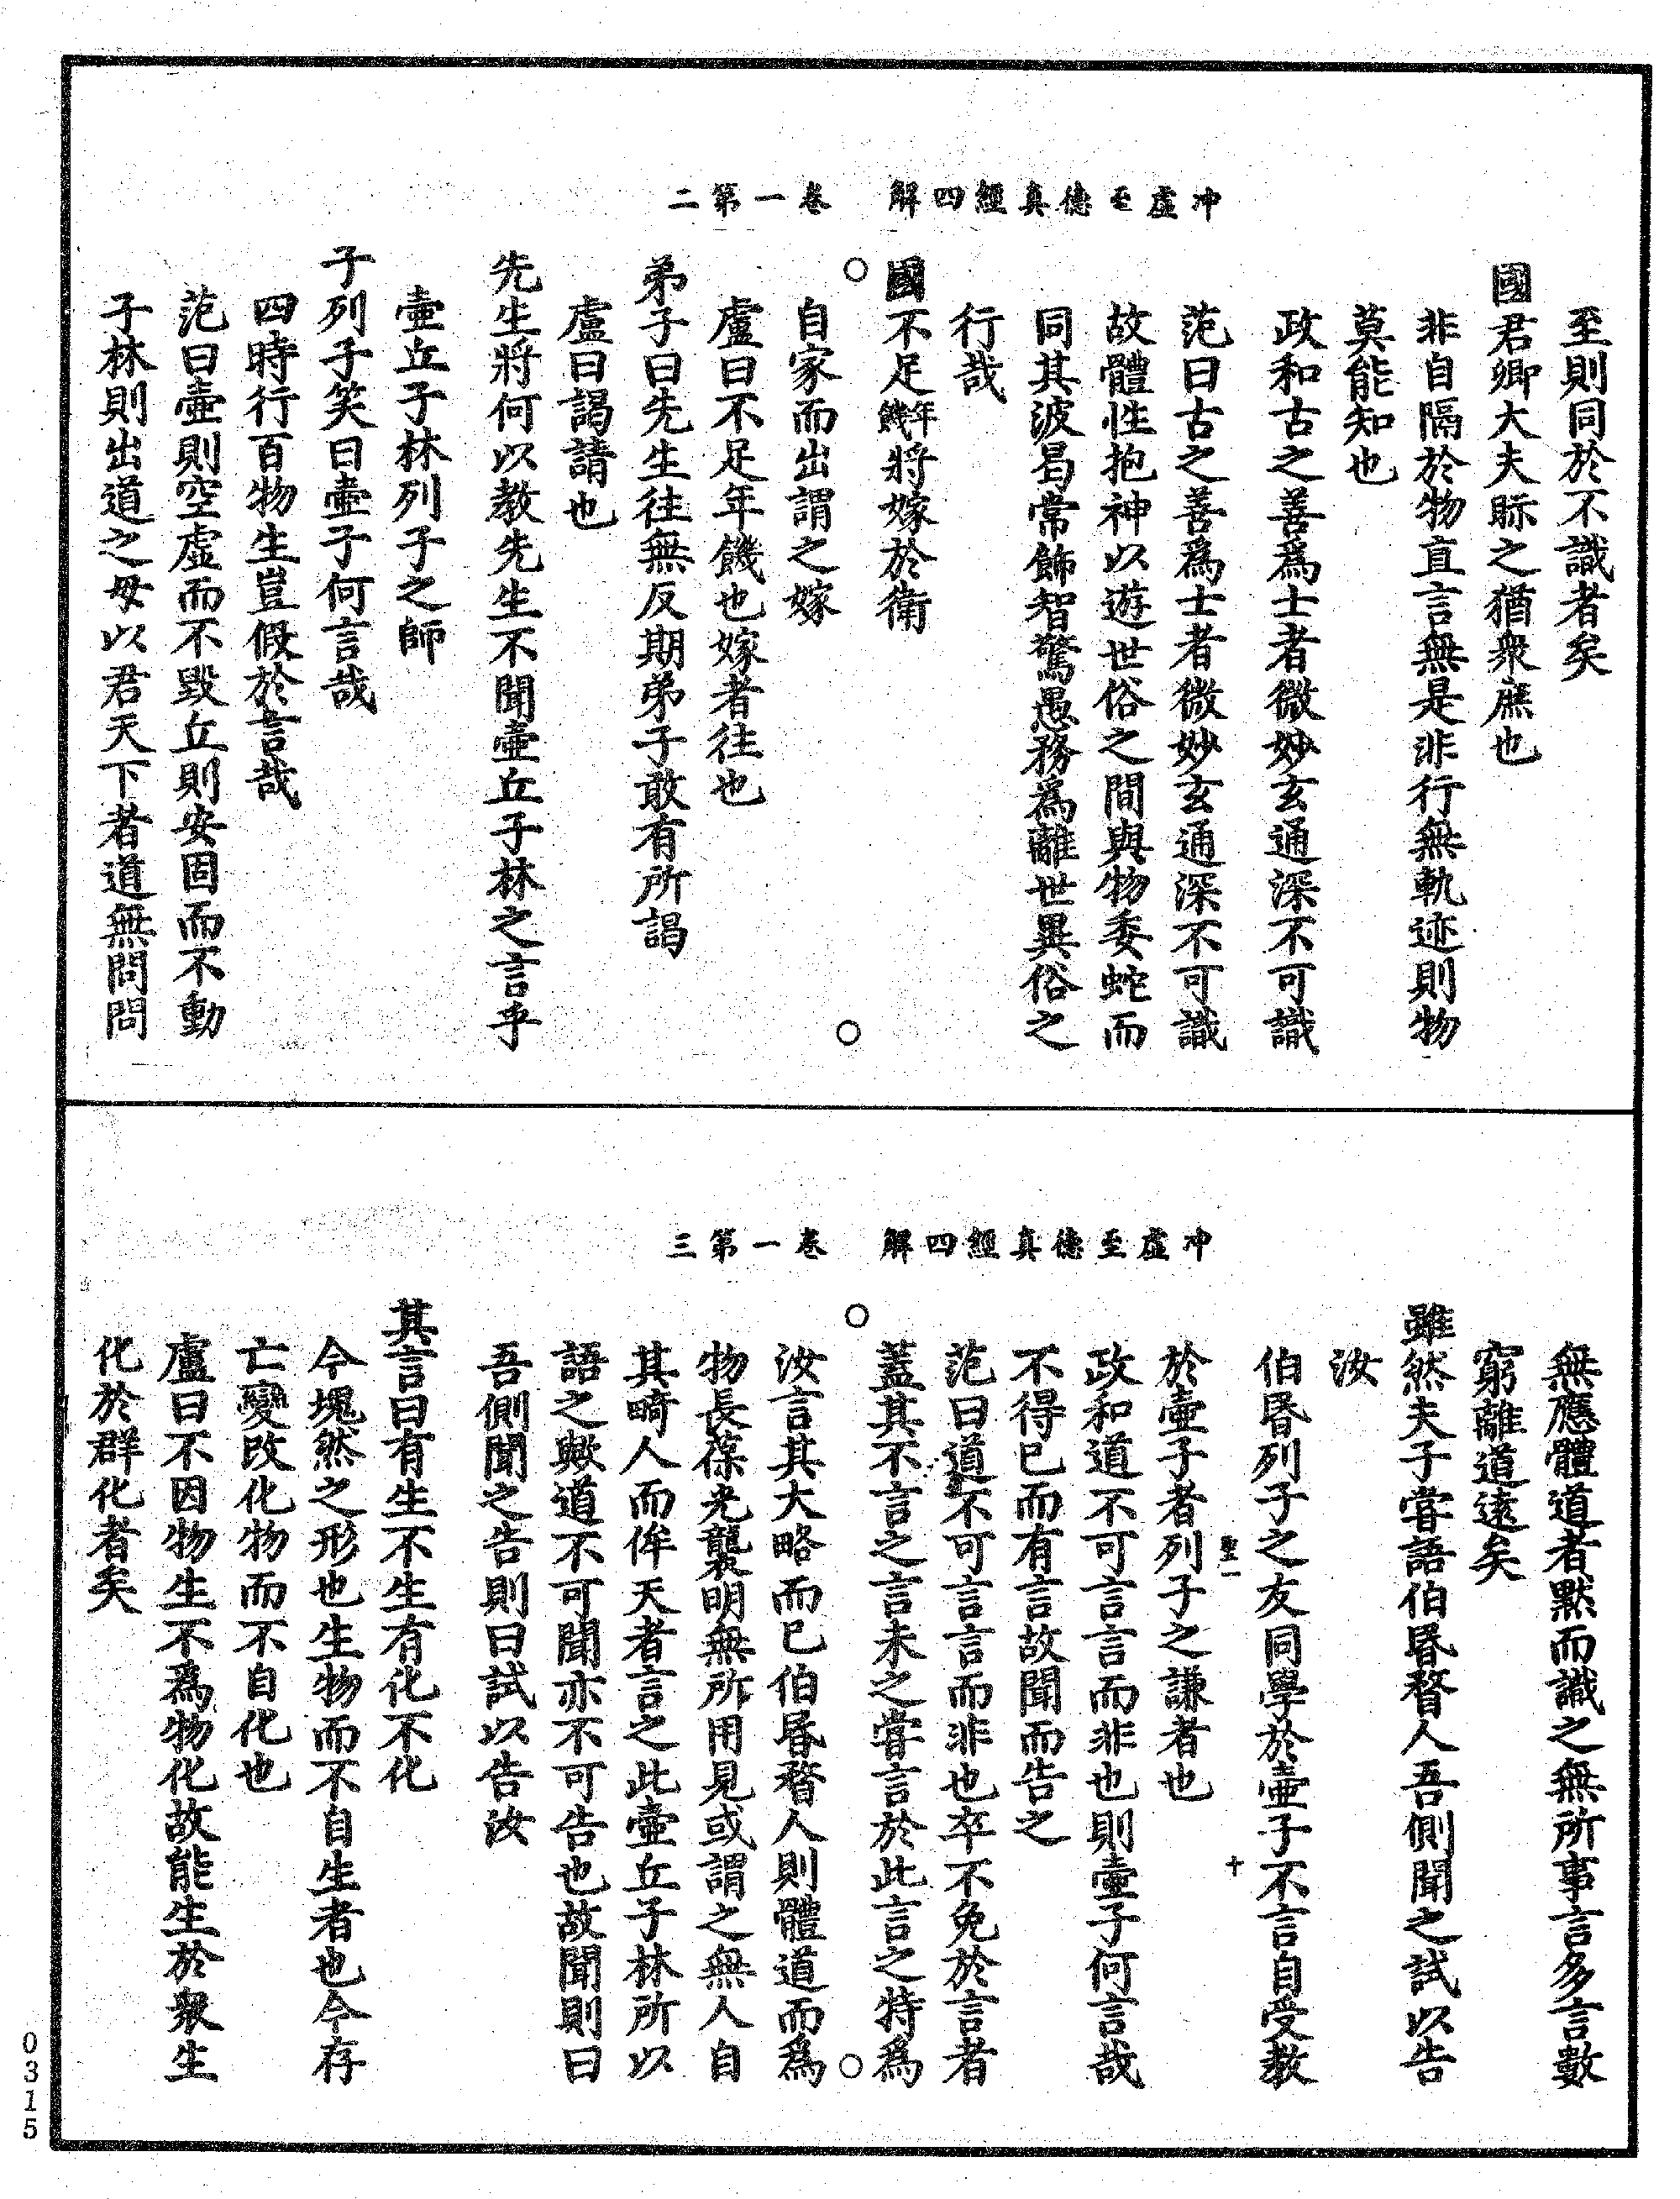 冲虚至德真經四解　卷一第二
至則同於不識者矣
國君卿大夫眎之猶衆庶也
非自隔於物直言無是非行無軌迹則物
莫能知也
政和古之善爲士者微妙玄通深不可識
范曰古之善爲士者微妙玄通深不可識
故體性抱神以遊世俗之間與物委蛇而
同其波曷常飾智驚愚務爲離世異俗之
行哉
國不足年饑將嫁於衛
自家而出謂之嫁
盧曰不足年饑也嫁者往也
弟子曰先生往無反期弟子敢有所謁
盧曰謁請也
先生將何以教先生不聞壺丘子林之言乎
壺丘子林列子之師
子列子笑曰壺子何言哉
四時行百物生豈假於言哉
范曰壺則空虛而不毀丘則安固而不動
子林則出道之母以君天下者道無問問
冲虚至德真經四解　卷一第三
無應體道者黙而識之無所事言多言數
窮離道遠矣
雖然夫子甞語伯昬瞀人吾側聞之試以告
汝
伯昬列子之友同學於壺子不言自受教
於壺子者列子之謙者也
聖一
十
政和道不可言言而非也則壺子何言哉
不得已而有言故聞而告之
范曰道不可言言而非也卒不免於言者
蓋其不言之言未之甞言於此言之特爲
汝言其大略而已伯昬瞀人則體道而爲
物長葆光襲明無所用見或謂之無人自
其畸人而侔天者言之此壺丘子林所以
語之歟道不可聞亦不可告也故聞則曰
吾側聞之告則曰試以告汝
其言曰有生不生有化不化
今塊然之形也生物而不自生者也今存
亡變改化物而不自化也
盧曰不因物生不爲物化故能生於衆生
化於群化者矣
0315